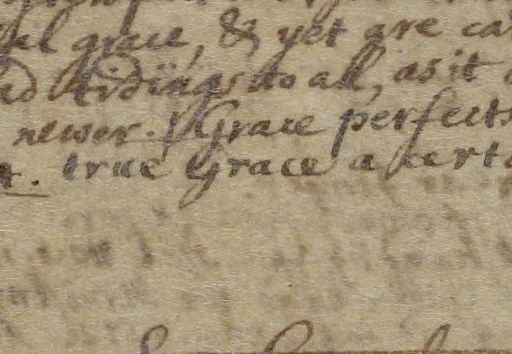 al grace, & yet are ca
ad tidings to all, as it
newer. Grace perfects
t. true Grace a certa